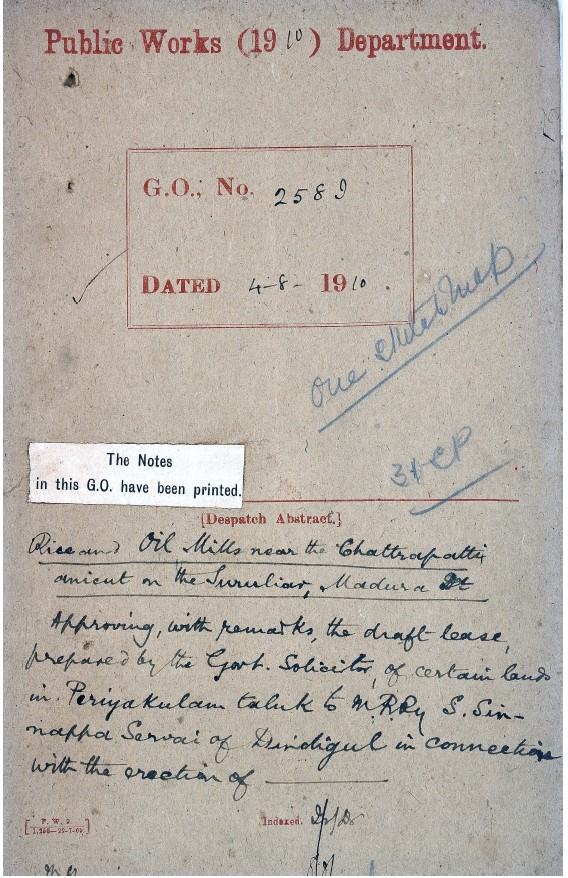 Public Works (1910) Department.
G.O., No. 2589
DATED 4-8-1910.
One Sketch Map
The Notes
in this G.O. have been printed.
[Despatch Abstract.]
Rice and Oil Mills near the Chattrapatti
anicut on the Suruliar, Madura Dt
Approving, with remarks, the draft lease,
prepared by the Govt. Solicitor, of certain lands
in Periyakulam taluk to M.R.Ry S. Sin-
nappa Servai of Dindigul in connection
with the erection of
Indexed.
[P. W. 2